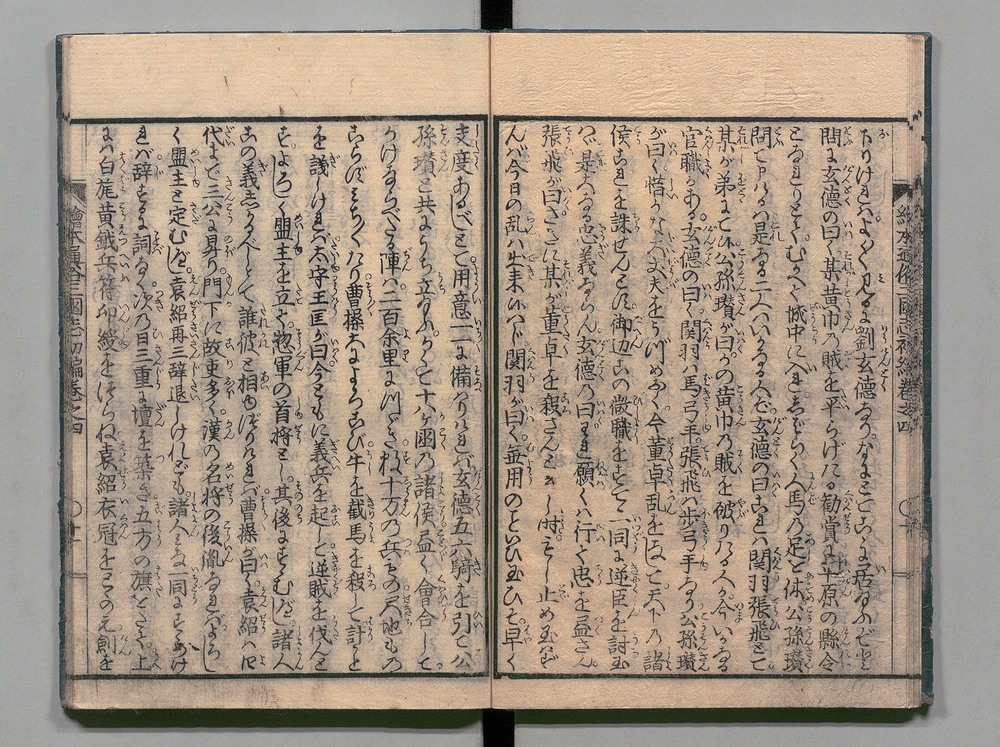 下りけれバよく〳〵見るに劉玄徳なりなんぞこゝに居給ふぞと
問玄徳の曰く某黄巾の賊を平らげたる勧賞に平原の縣令
となれりとぞむかへ城中に入しバらく人馬の足を休公孫瓚
問て曰ハ是なる二人ハいかなる人ぞ玄徳の曰これハ関羽張飛とて
某が弟にて公孫瓚が曰かの黄巾の賊を破りたる人か今いかなる
官職かある玄徳の曰く関羽ハ馬弓手張飛ハ歩弓手なり公孫瓚
が曰く惜いかな大丈夫をうづめおく今董卓乱をなして天下の諸
侯これを誅せんとす御辺この微職をすてゝ一同に逆臣を討玉
ハゞ是大なる忠義ならん玄徳の曰それ願くハ行て忠を盡さん
張飛が曰さきに某が董卓を殺さんとせし時もし止め玉ハずバ
んぞ今日の乱ハ出来ハべき関羽が曰く無用のこといひ玉ひそ早く
支度あるべしとて用意一々に備りけれバ玄徳五六騎を引て公
孫瓚と共にうち立給ふかくて十八ヶ國の諸侯盡く會合して
かけならべたる陣ハ二百余里につゞき数十万の兵その尺地もの
こらずみち〳〵たり曹操大によろこび牛を截馬を殺して計こと
を議しけれバ太守王匡が曰今ともに義兵を起して逆賊を伐んと
すよろしく盟主を立て惣軍の首将とし其後にすゝむべし諸人
この義しかるべしとて誰彼と相ゆづりけれバ曹操が曰く袁紹ハ四
代まで三公に昇り門下に故吏多く漢の名将の後胤なれバよろし
く盟主と定むべし袁紹再三辞退しけれども諸人みな一同にすゝめけ
れバ辞するに詞なく次の日三重に壇を築き五方の旗をたて上
にハ白旄黄鉞兵符印綬をつらね袁紹衣冠をとゝのえ剣を
繪本通俗三國志初編巻之四
繪本通俗三國志初編巻之四